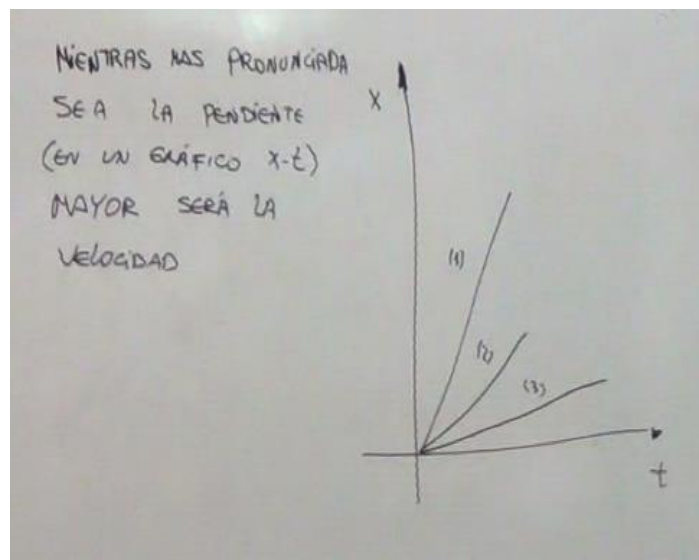 MIENTRAS MAS PRONUNCIADA
SEA LA PENDIENTE
(EN UN GRÁFICO X-t)
MAYOR SERÁ LA
VELOCIDAD
X
(1)
(2)
(3)
t